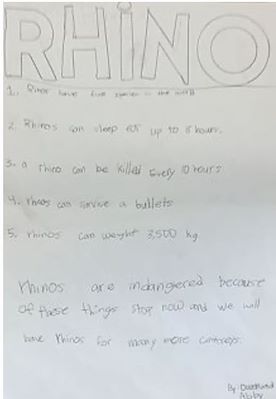 RHINO
1. Rhinos have five species in the world
2. Rhinos can sleep for up to 8 hours.
3. a rhino can be killed every 10 hours
4. rhinos can survive a bullets
5. rhinos can weight 3,500 kg
rhinos are indangered because
of these things stop now and we will
have rhinos for many more
By: and
Abby